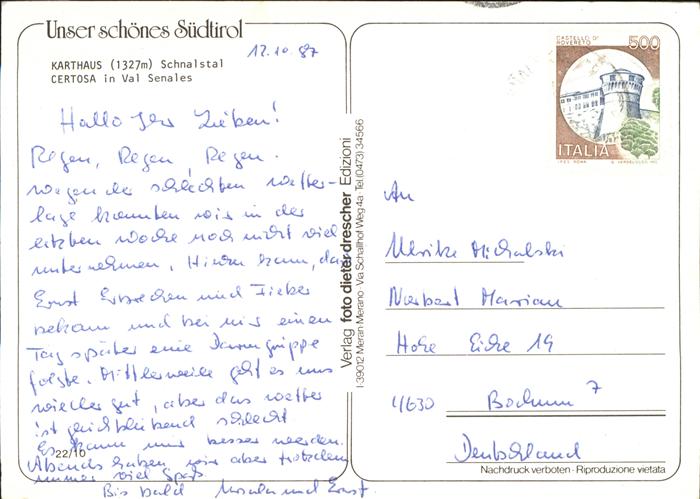 Unser schönes Südtirol
KARTHAUS (1327m) Schnalstal
CERTOSA in Val Senales
12.10.87
Hallo Ihr Lieben!
Regen, Regen, Regen.
Wegen der schlechten Wetter-
lage konnten wir in der
letzten Woche noch nicht viel
unternehmen. Hinzu kam, das
Ernst Erbrechen und Fieber
bekam und bei mir einen
Tag später eine Darmgrippe
folgte. Mittlerweile geht es uns
wieder gut, aber das Wetter
ist gleichbleibend schlecht
Es kann nur besser werden.
Abends haben wir aber trotzdem
immer viel Spaß.
Bis bald und Ernst
22/10
Verlag foto dieter drescher Edizioni
I-39012 Meran-Merano · Via Schallhof Weg 4a · Tel. (0473) 34566
CASTELLO DI
ROVERETO
500
ITALIA
I.P.Z.S. ROMA
An
Ulrike Michalski
Norbert Marian
Hohe Eiche 19
4630 Bochum 7
Deutschland
Nachdruck verboten · Riproduzione vietata